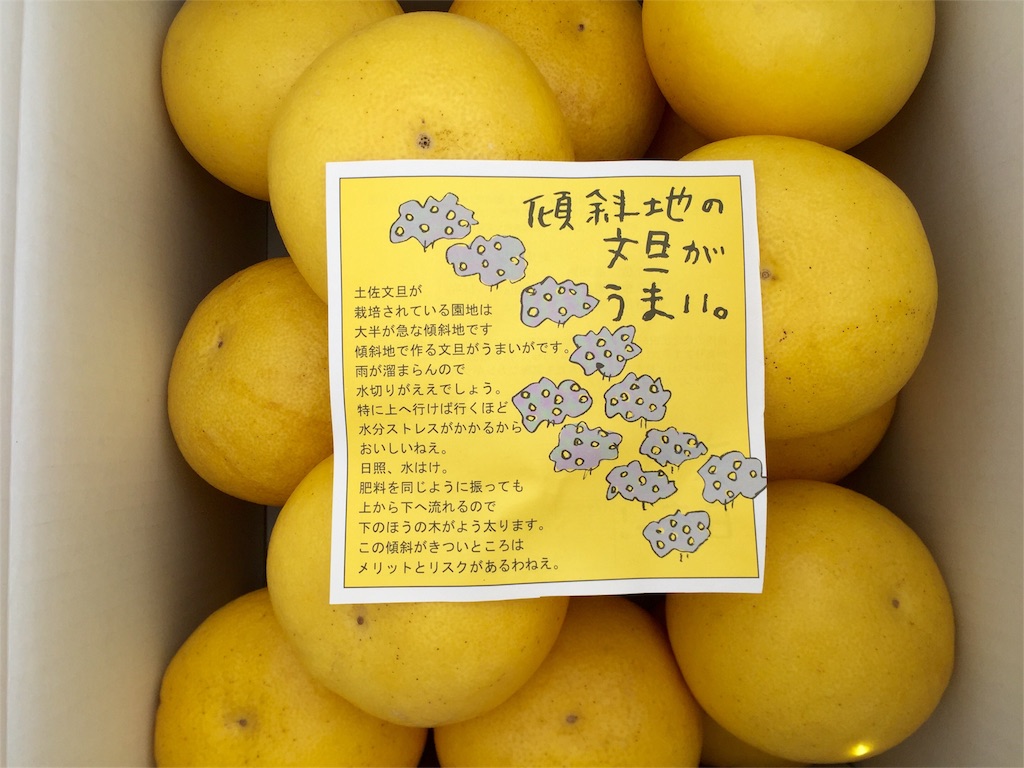 傾斜地の
文旦が
うまい。
土佐文旦が
栽培されている園地は
大半が急な傾斜地です
傾斜地で作る文旦がうまいがです。
雨が溜まらんので
水切りがええでしょう。
特に上へ行けば行くほど
水分ストレスがかかるから
おいしいねえ。
日照、水はけ。
肥料を同じように振っても
上から下へ流れるので
下のほうの木がよう太ります。
この傾斜がきついところは
メリットとリスクがあるわねえ。